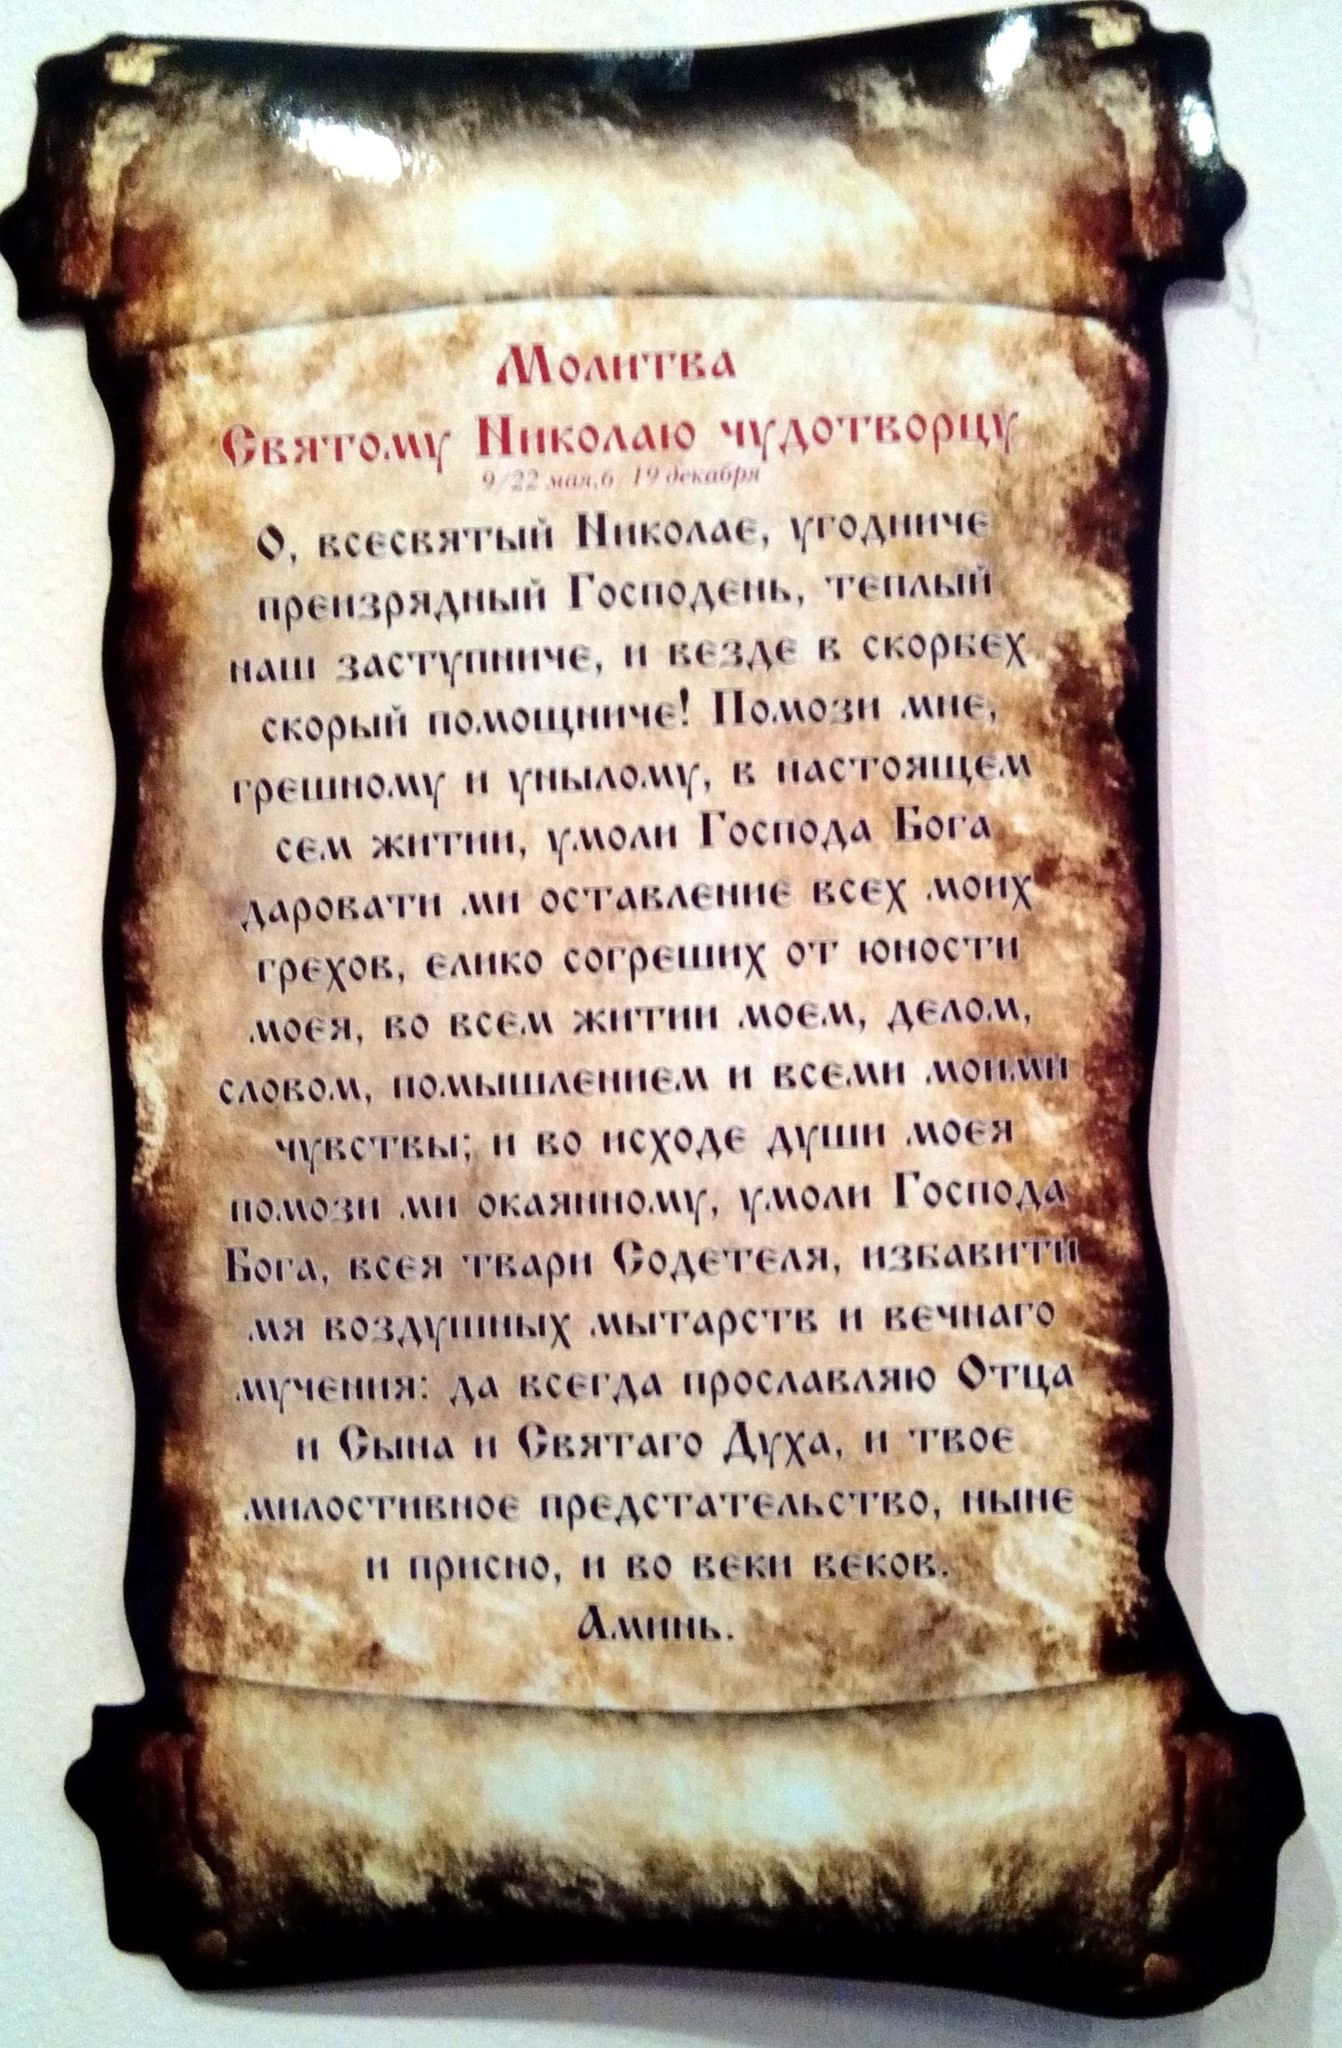 Молитва
Святому Николаю чудотворцу
9/22 мая,6/19 декабря
О, всесвятый Николае, угодниче
преизрядный Господень, теплый
наш заступниче, и везде в скорбех
скорый помощниче! Помози мне,
грешному и унылому, в настоящем
сем житии, умоли Господа Бога
даровати ми оставление всех моих
грехов, елико согреших от юности
моея, во всем житии моем, делом,
словом, помышлением и всеми моими
чувствы; и во исходе души моея
помози ми окаянному, умоли Господа
Бога, всея твари Содетеля, избавити
мя воздушных мытарств и вечнаго
мучения: да всегда прославляю Отца
и Сына и Святаго Духа, и твое
милостивное предстательство, ныне
и присно, и во веки веков.
Аминь.